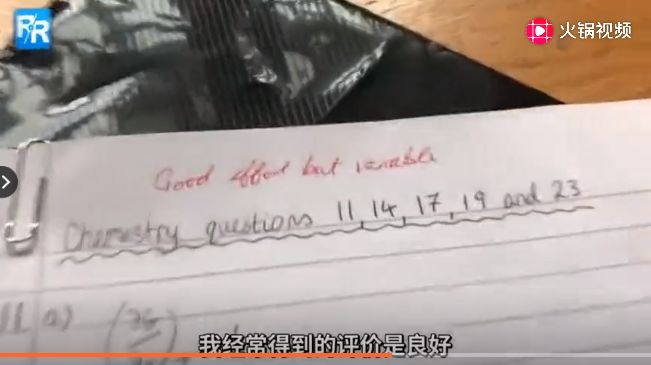 RR
火锅视频
Good effort but variable
Chemestry questions 11, 14, 17, 19 and 23
11 a)
我经常得到的评价是良好